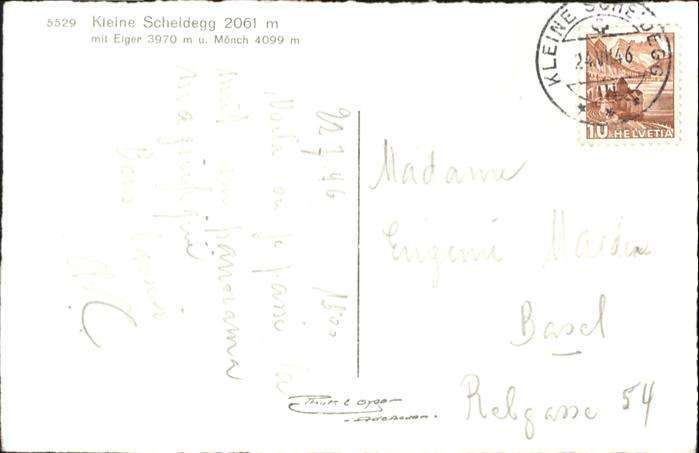 5529 Kleine Scheidegg 2061 m
mit Eiger 3970 m u. Mönch 4099 m
KLEINE SCHEIDEGG
24.VII.46
10 HELVETIA
22.7.46
Voilà où je passe la
nuit un panorama
magnifique
Bons
Madame
Eugénie
Basel
Rebgasse 54